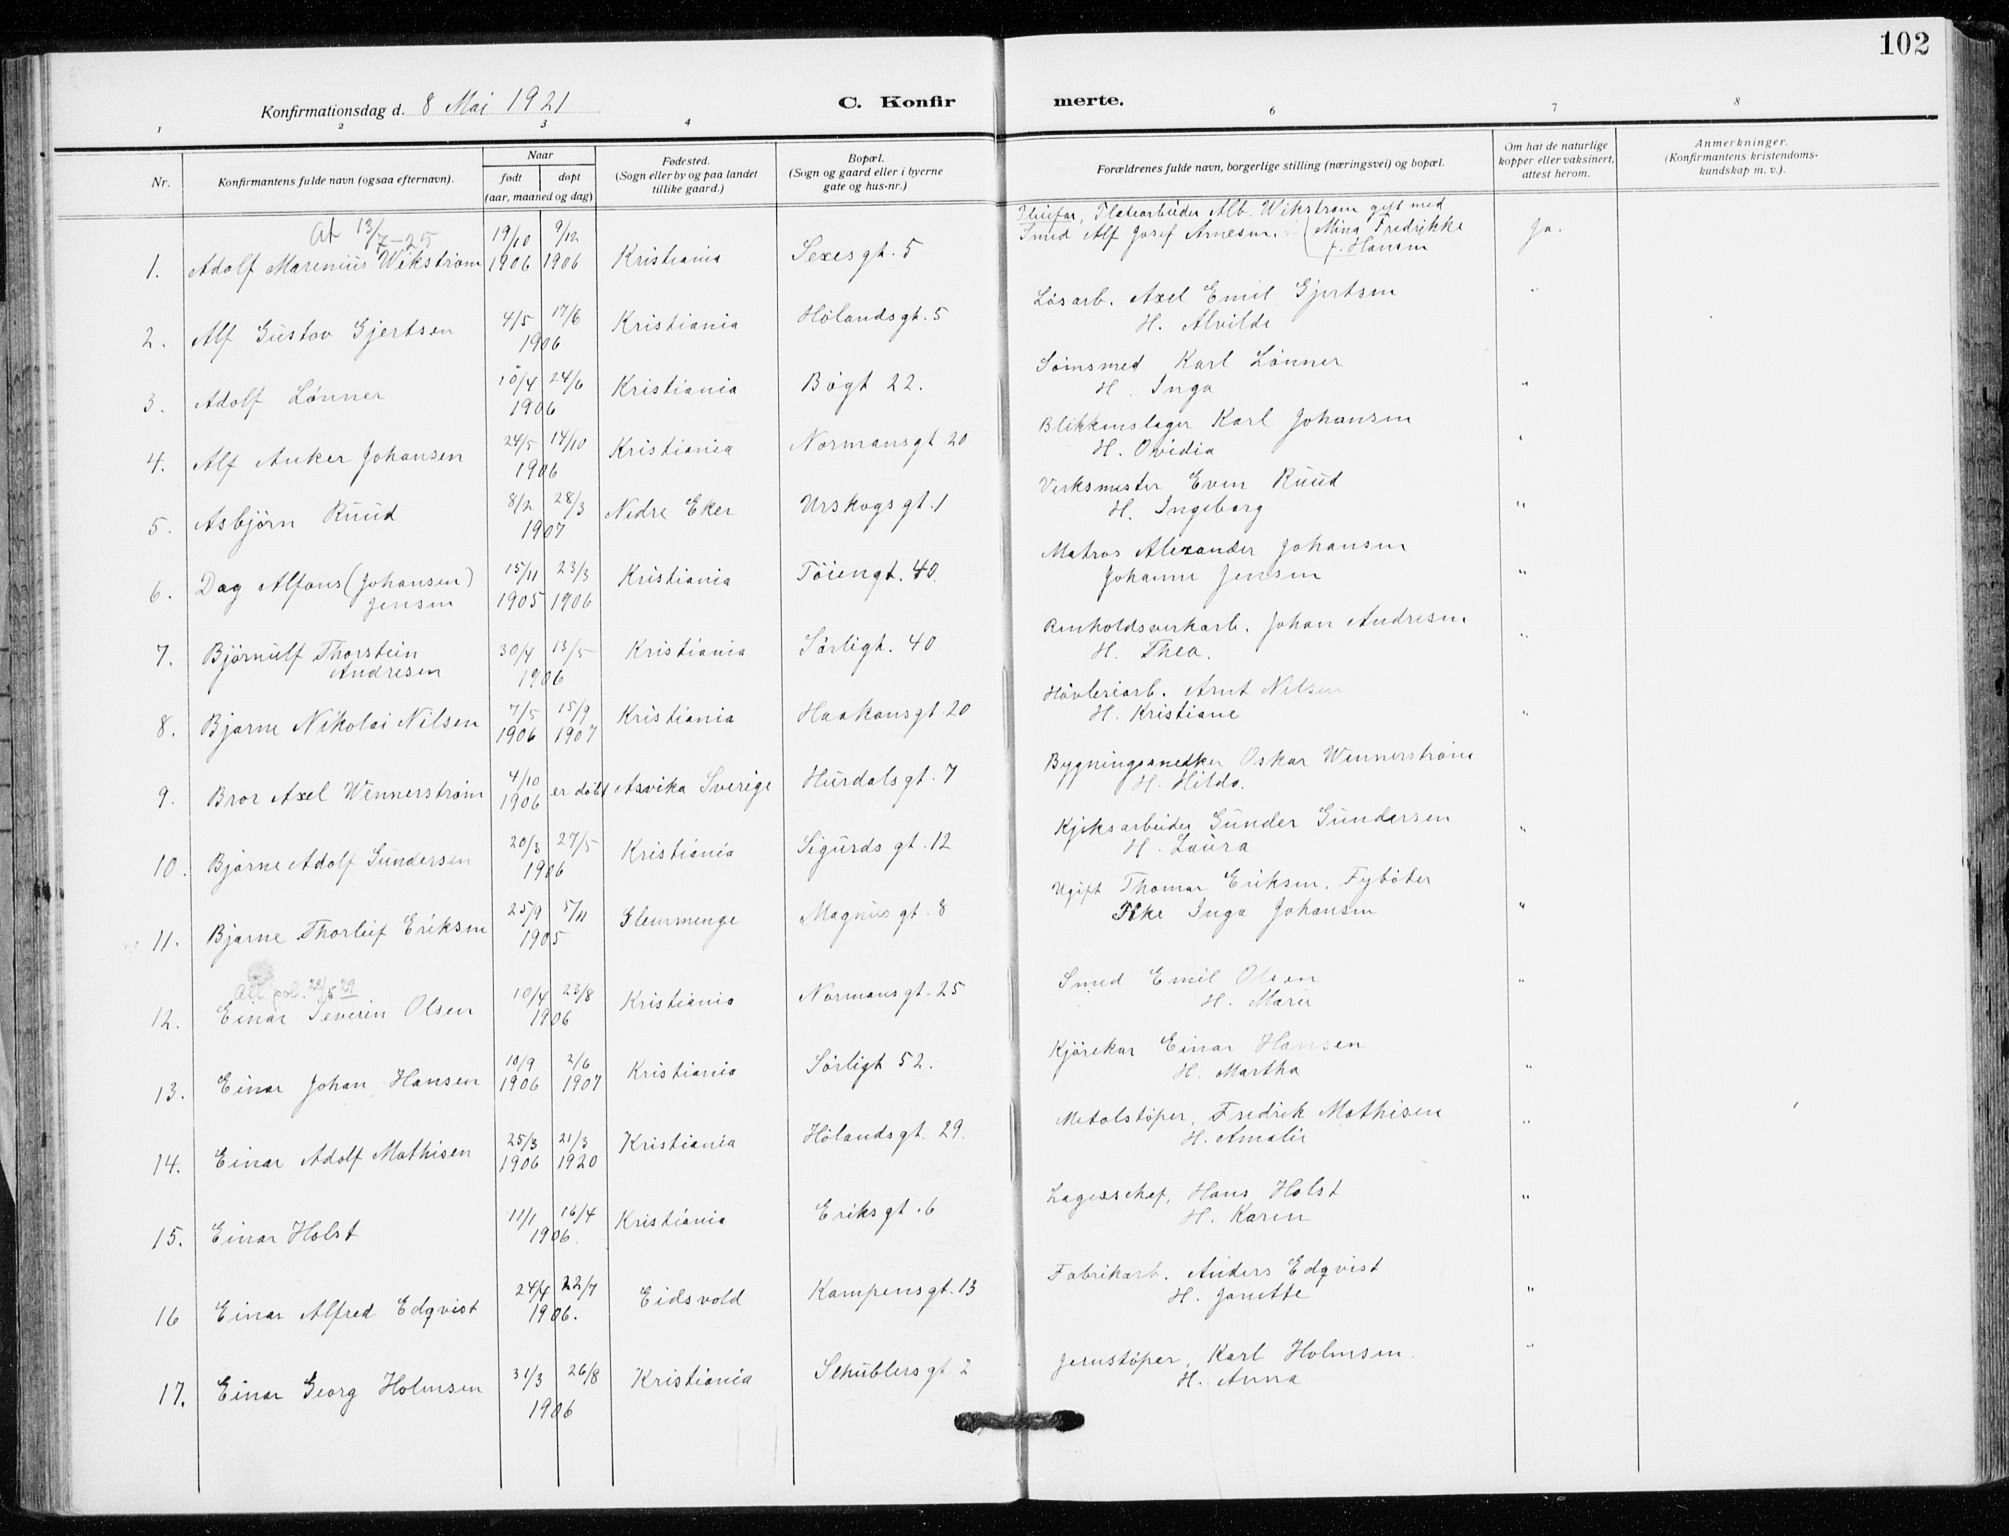 102
Konfirmationsdag d. 8 Mai 1921
C. Konfir merte.
1 2 3 4 6 7 8
Nr.
Konfirmantens fulde navn (ogsaa efternavn).
Naar
født døpt
(aar, maaned og dag)
Fødested.
(Sogn eller by og paa landet
tillike gaard.)
Bopæl.
(Sogn og gaard eller i byerne
gate og hus-nr.)
Forældrenes fulde navn, borgerlige stilling (næringsvei) og bopæl.
Om hat de naturlige
kopper eller vaksinert,
attest herom.
Anmerkninger.
(Konfirmantens kristendoms-
kundskap m. v.).
At 13/7-25
19/10 9/12 Alb. Wikstrøm gift med
1. Adolf Marenius Wikstrøm 1906 1906 Kristiania Sexesgt. 5 Smed Alf Josef Arnesen. (Mina Fredrikke Ja.
f. Hansen
2. Alf Gustav Gjertsen 4/5 17/6 Kristiania Hølandsgt. 5 Løsarb. Axel Emil Gjertsen "
1906 H. Alvilde
3. Adolf Lønner 10/4 24/6 Kristiania Bøgt 22. Sømsmed Karl Lønner "
1906 H. Inga
4. Alf Anker Johansen 24/5 14/10 Kristiania Normansgt 20 Blikkenslager Karl Johansen "
1906 H. Ovidia
5. Asbjørn Ruud 8/2 28/3 Nedre Eker Urskogsgt. 1 Verksmester Even Ruud "
1907 H. Ingeborg
6. Dag Alfons (Johansen) 15/11 23/3 Kristiania Tøiengt. 40. Matros Alexander Johansen "
Jensen 1905 1906 Johanne Jensen
7. Bjørnulf Thorstein 30/4 13/5 Kristiania Sørligt. 40 Renholdsverkarb. Johan Andresen "
Andresen 1906 H. Thea.
8. Bjarne Nikolai Nilsen 7/5 15/9 Kristiania Haakonsgt. 20 Høvleriarb. Arnt Nilsen "
1906 1907 H. Kristiane
9. Bror Axel Wennerstrøm 4/10 er døbt Arvika Sverige Hurdalsgt. 7 Bygningssnedker Oskar Wennerstrøm
1906 H. Hilda.
10. Bjarne Adolf Gundersen 20/3 27/5 Kristiania Sigurdsgt. 12 Kjeksarbeider Gunder Gundersen "
1906 H. Laura
11. Bjarne Thorleif Eriksen 25/9 5/11 Glemmenge Magnusgt. 8 Ugift Thomar Eriksen. Fybøter "
1905 Inga Johansen
All. pol. 23/5 29
12. Einar Severin Olsen 10/4 23/8 Kristiania Normansgt. 25 Smed Emil Olsen "
1906 H. Marie
13. Einar Johan Hansen 10/9 2/6 Kristiania Sørligt 52. Kjørekar Einar Hansen "
1906 1907 H. Martha
14. Einar Adolf Mathisen 25/3 21/3 Kristiania Hølandsgt. 29. Metalstøper, Fredrik Mathisen "
1906 1920 H. Amalie
15. Einar Holst 11/1 16/4 Kristiania Eriksgt. 6 Lagerschef, Hans Holst "
1906. H. Karen
16 Einar Alfred Edqvist 24/4 22/7 Eidsvold Kampensgt. 13 Fabrikarb. Anders Edqvist "
1906. H. Janette
17. Einar Georg Holmsen 31/3 26/8 Kristiania Schublersgt 2 Jernstøper, Karl Holmsen. "
1906 H. Anna